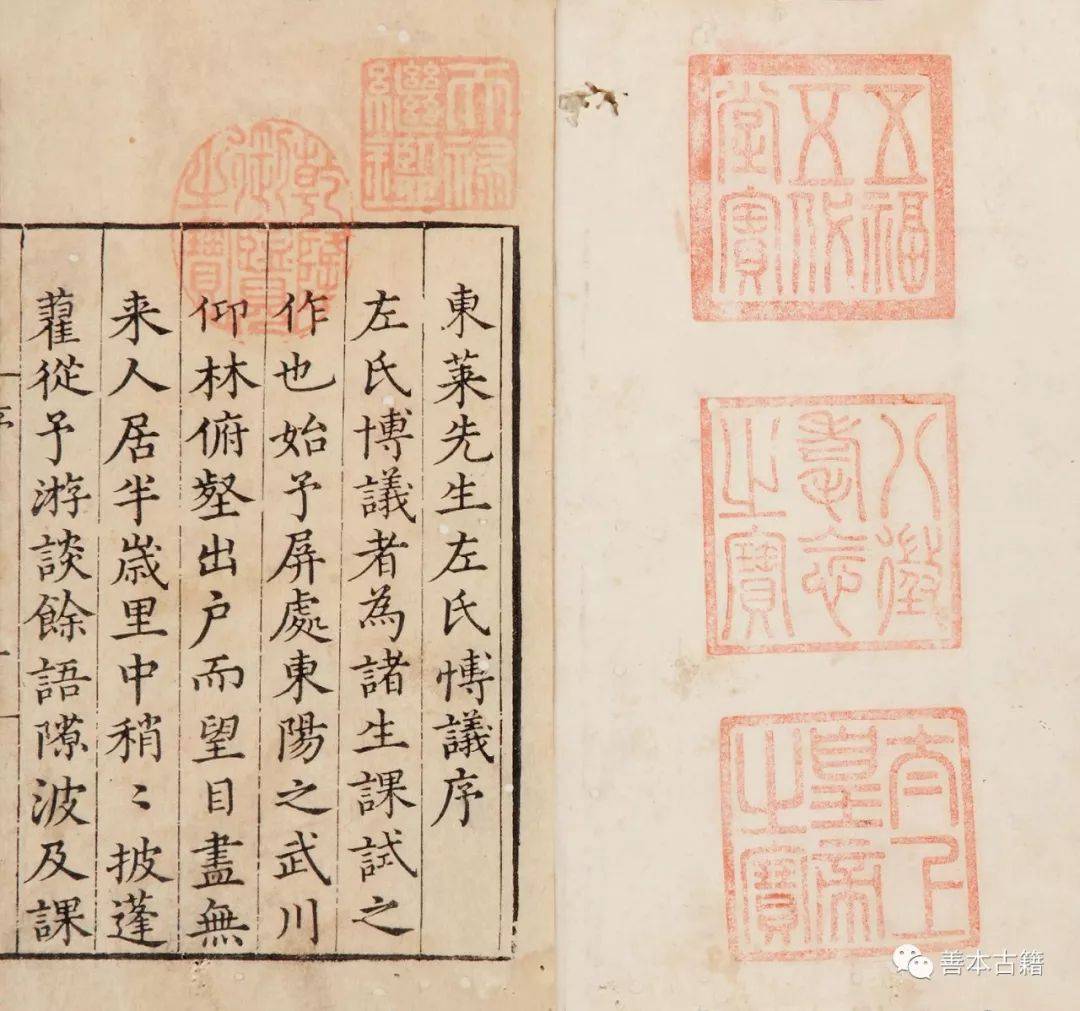 五福
五代
堂寶
八徵
耄念
之寶
太上
皇帝
之寶
天祿
繼鑑
乾隆
御覽
之寶
東萊先生左氏愽議序
左氏博議者為諸生課試之
作也始予屏處東陽之武川
仰林俯壑出户而望目盡無
来人居半歲里中稍〻披蓬
藋從予游談餘語隙波及課
善本古籍